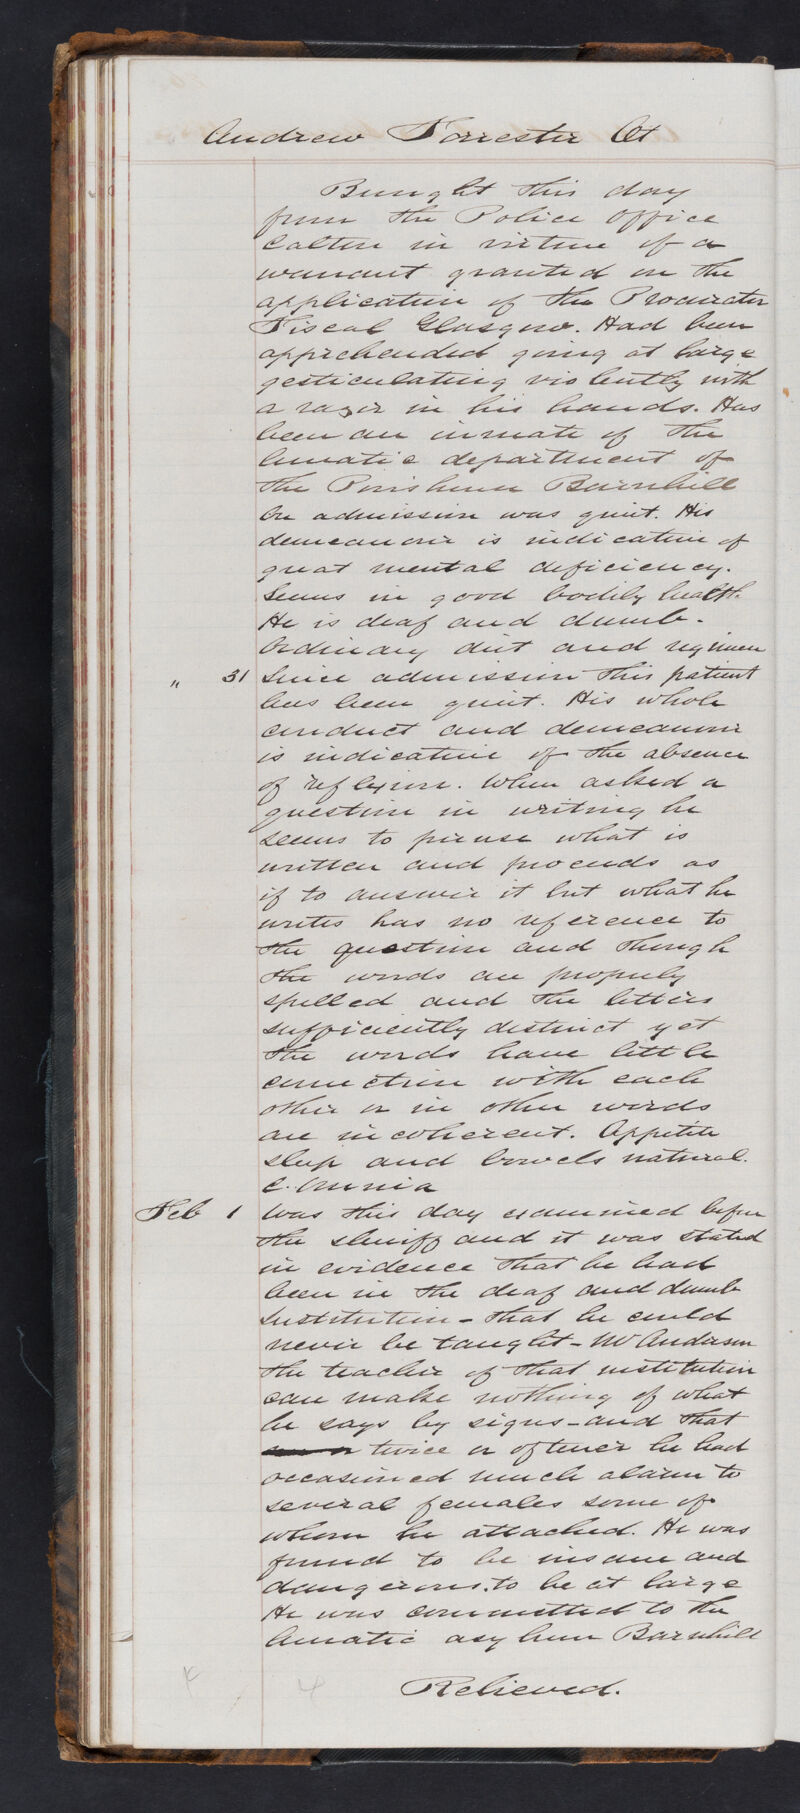 Andrew Forrester Ct
Brought this day
from the Police Office
Calton in virtue of a
warrant granted on the
application of the Procurator
Fiscal Glasgow. Had been
apprehended going at large
gesticulating violently with
a razor in his hands. Has
been an inmate of the
lunatic department of
the Barnhill
On admission was quiet. His
demeanour is indicative of
great mental deficiency.
Seems in good bodily health.
He is deaf and dumb.
Ordinary diet and regimen
" 31 Since admission this patient
has been quiet. His whole
conduct and demeanour
is indicative of the absence
of reflexion. When asked a
question in writing he
seems to peruse what is
written and proceeds as
if to answer it but what he
writes has no reference to
the question and though
the words are properly
spelled and the letters
sufficiently distinct yet
the words have little
connection with each
other or in other words
are incoherent. Appetite
sleep and bowels natural.
C. Omnia
Feb 1 Was this day examined before
the sheriff and it was stated
in evidence that he had
been in the deaf and dumb
Institution - that he could
never be taught - Mr Anderson
the teacher of that institution
can make nothing of what
he says by signs - and that
twice or oftener he had
occasioned much alarm to
several females some of
whom he attacked. He was
found to be insane and
dangerous to be at large
He was committed to the
lunatic asylum Barnhill
Relieved.